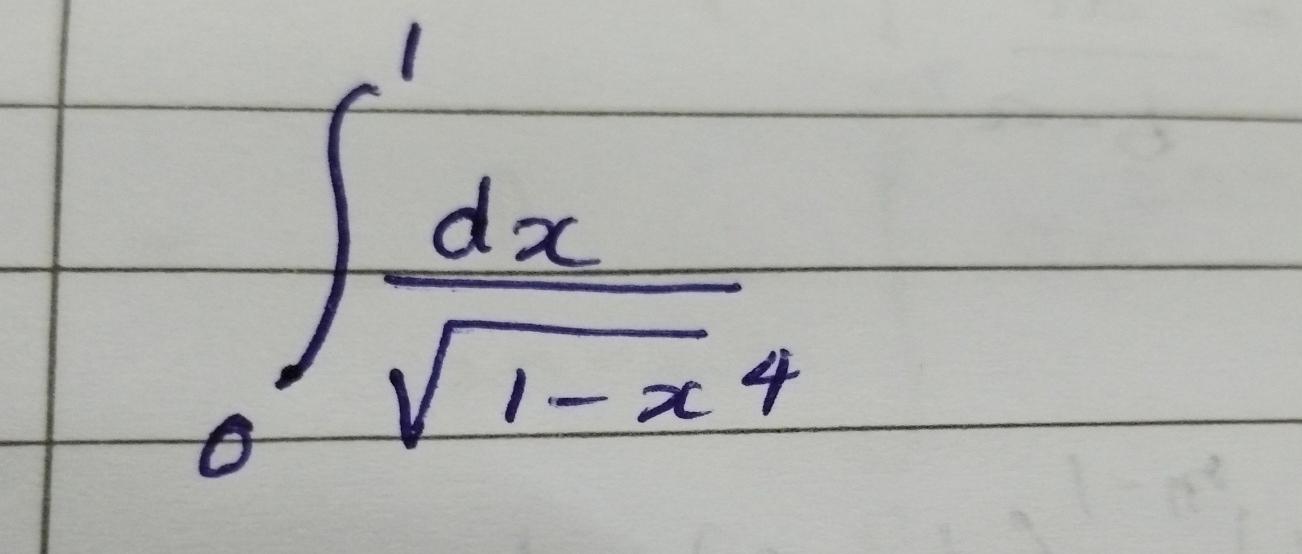 ∫₀¹ dx / √(1-x⁴)